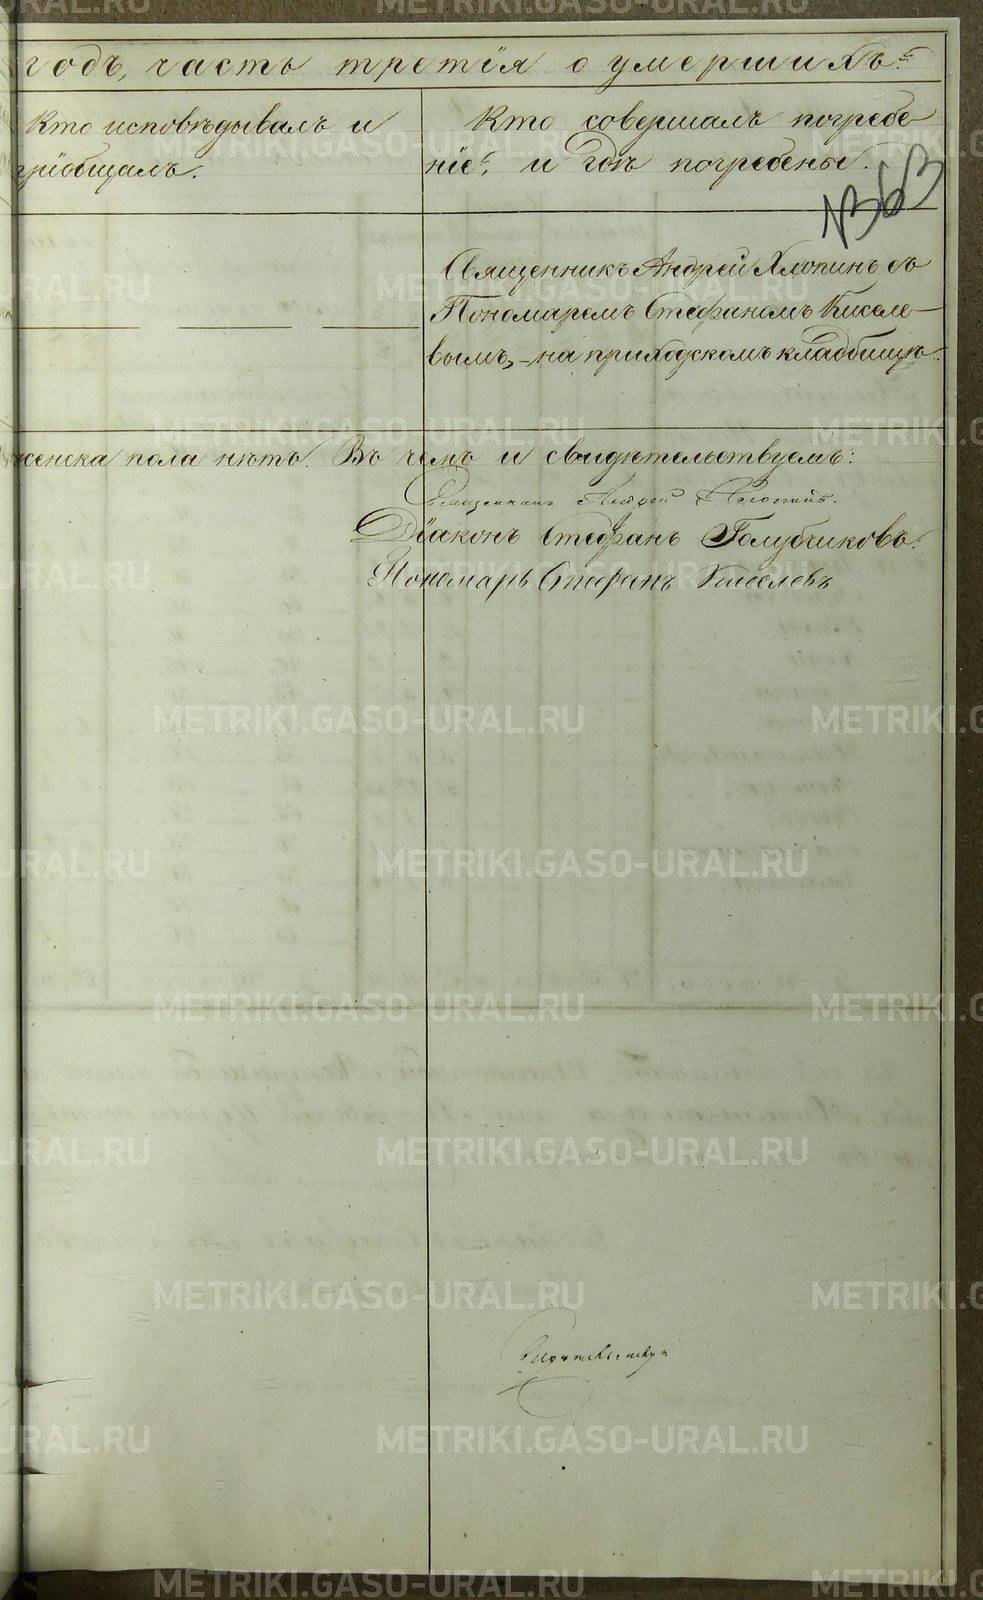 годъ, часть третія о умершихъ:
Кто исповѣдывалъ и
пріобщалъ.
Кто совершалъ погребе-
ніе, и гдѣ погребены.
№363
Священникъ Андрей Хлопинъ съ
Пономаремъ Стефаномъ Киселе-
вымъ, - на приходскомъ кладбищѣ.
женска пола нѣтъ. Въ чемъ и свидѣтельствуемъ:
Священникъ Андрей Хлопинъ.
Діаконъ Стефанъ Голубчиковъ.
Пономарь Стефанъ Киселевъ
METRIKI.GASO-URAL.RU